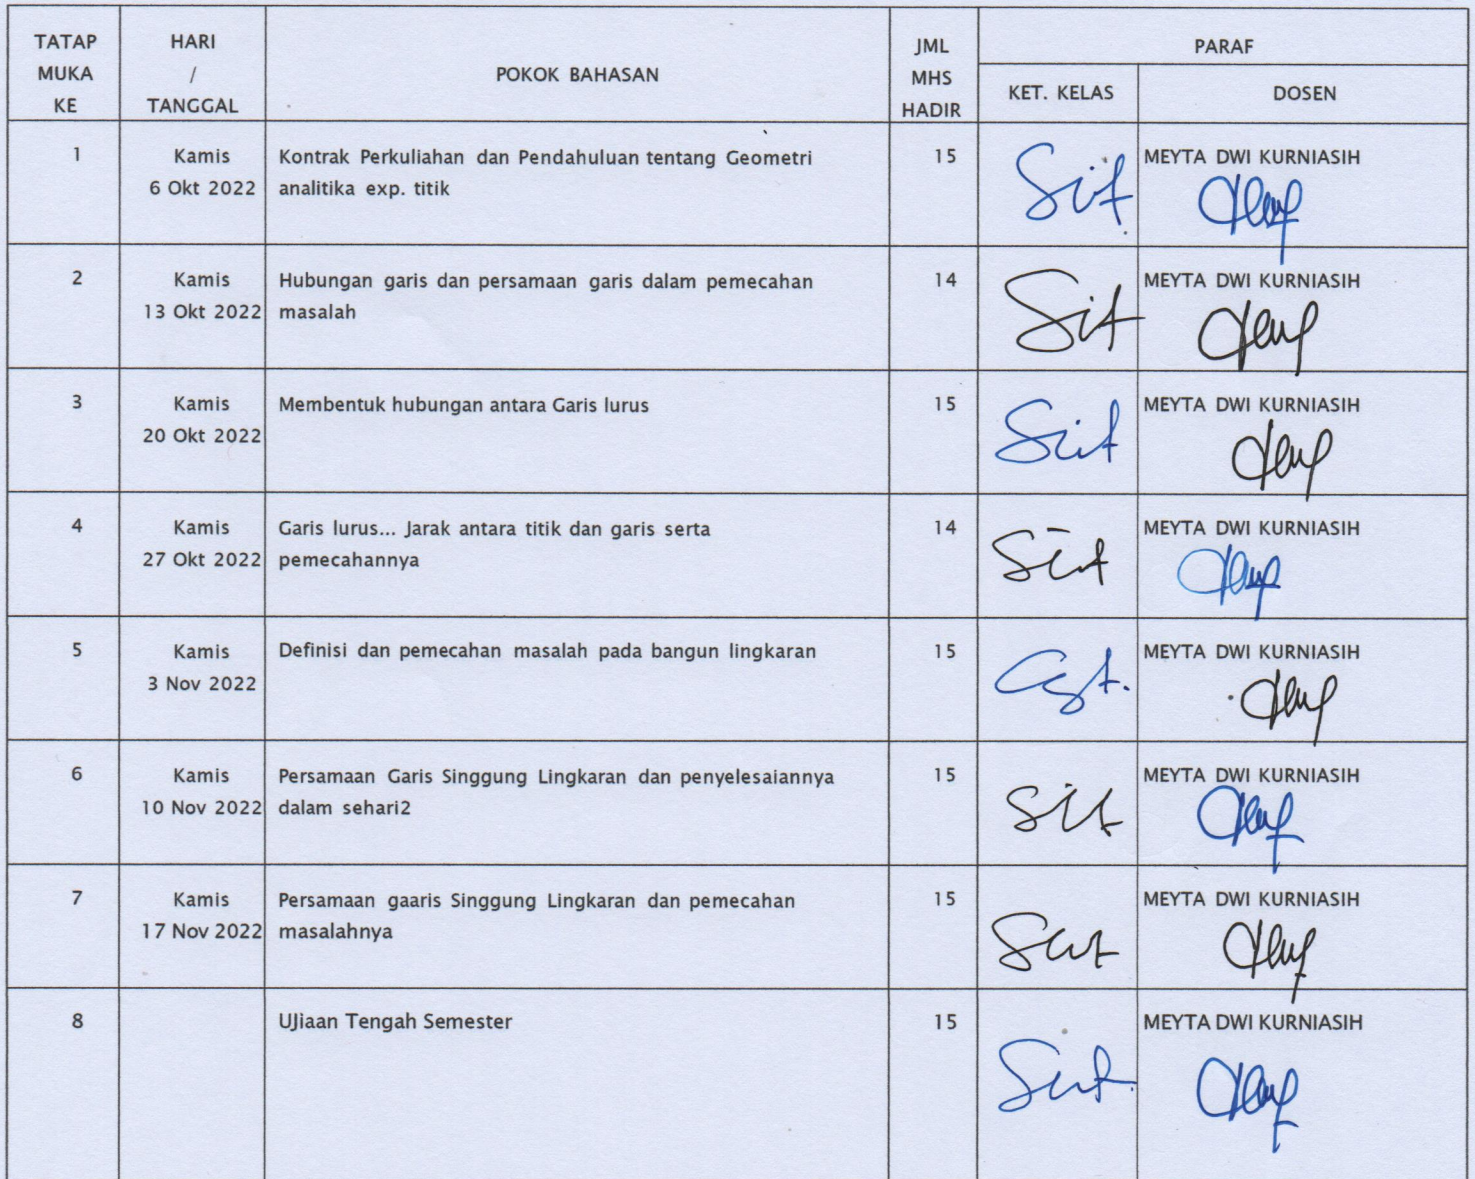 TATAP MUKA KE
HARI / TANGGAL
POKOK BAHASAN
JML MHS HADIR
PARAF
KET. KELAS
DOSEN
1
Kamis
6 Okt 2022
Kontrak Perkuliahan dan Pendahuluan tentang Geometri
analitika exp. titik
15
MEYTA DWI KURNIASIH
2
Kamis
13 Okt 2022
Hubungan garis dan persamaan garis dalam pemecahan
masalah
14
MEYTA DWI KURNIASIH
3
Kamis
20 Okt 2022
Membentuk hubungan antara Garis lurus
15
MEYTA DWI KURNIASIH
4
Kamis
27 Okt 2022
Garis lurus... Jarak antara titik dan garis serta
pemecahannya
14
MEYTA DWI KURNIASIH
5
Kamis
3 Nov 2022
Definisi dan pemecahan masalah pada bangun lingkaran
15
MEYTA DWI KURNIASIH
6
Kamis
10 Nov 2022
Persamaan Garis Singgung Lingkaran dan penyelesaiannya
dalam sehari2
15
MEYTA DWI KURNIASIH
7
Kamis
17 Nov 2022
Persamaan gaaris Singgung Lingkaran dan pemecahan
masalahnya
15
MEYTA DWI KURNIASIH
8
UJiaan Tengah Semester
15
MEYTA DWI KURNIASIH